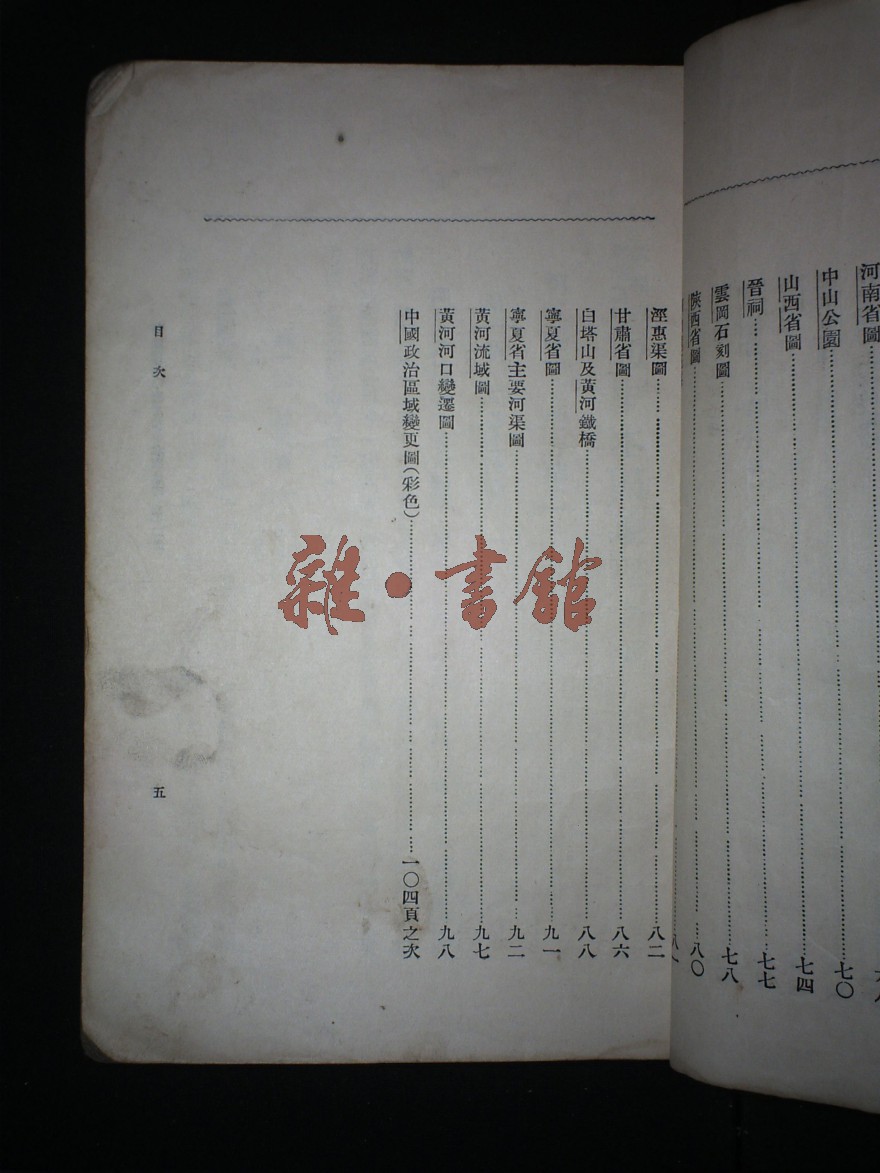 河南省圖
中山公園……七〇
山西省圖……七四
晉祠……七七
雲岡石刻圖……七八
陝西省圖……八〇
涇惠渠圖……八二
甘肅省圖……八六
白塔山及黃河鐵橋……八八
寧夏省圖……九一
寧夏省主要河渠圖……九二
黃河流域圖……九七
黃河河口變遷圖……九八
中國政治區域變更圖(彩色)……一〇四頁之次
目次
五
雜·書館